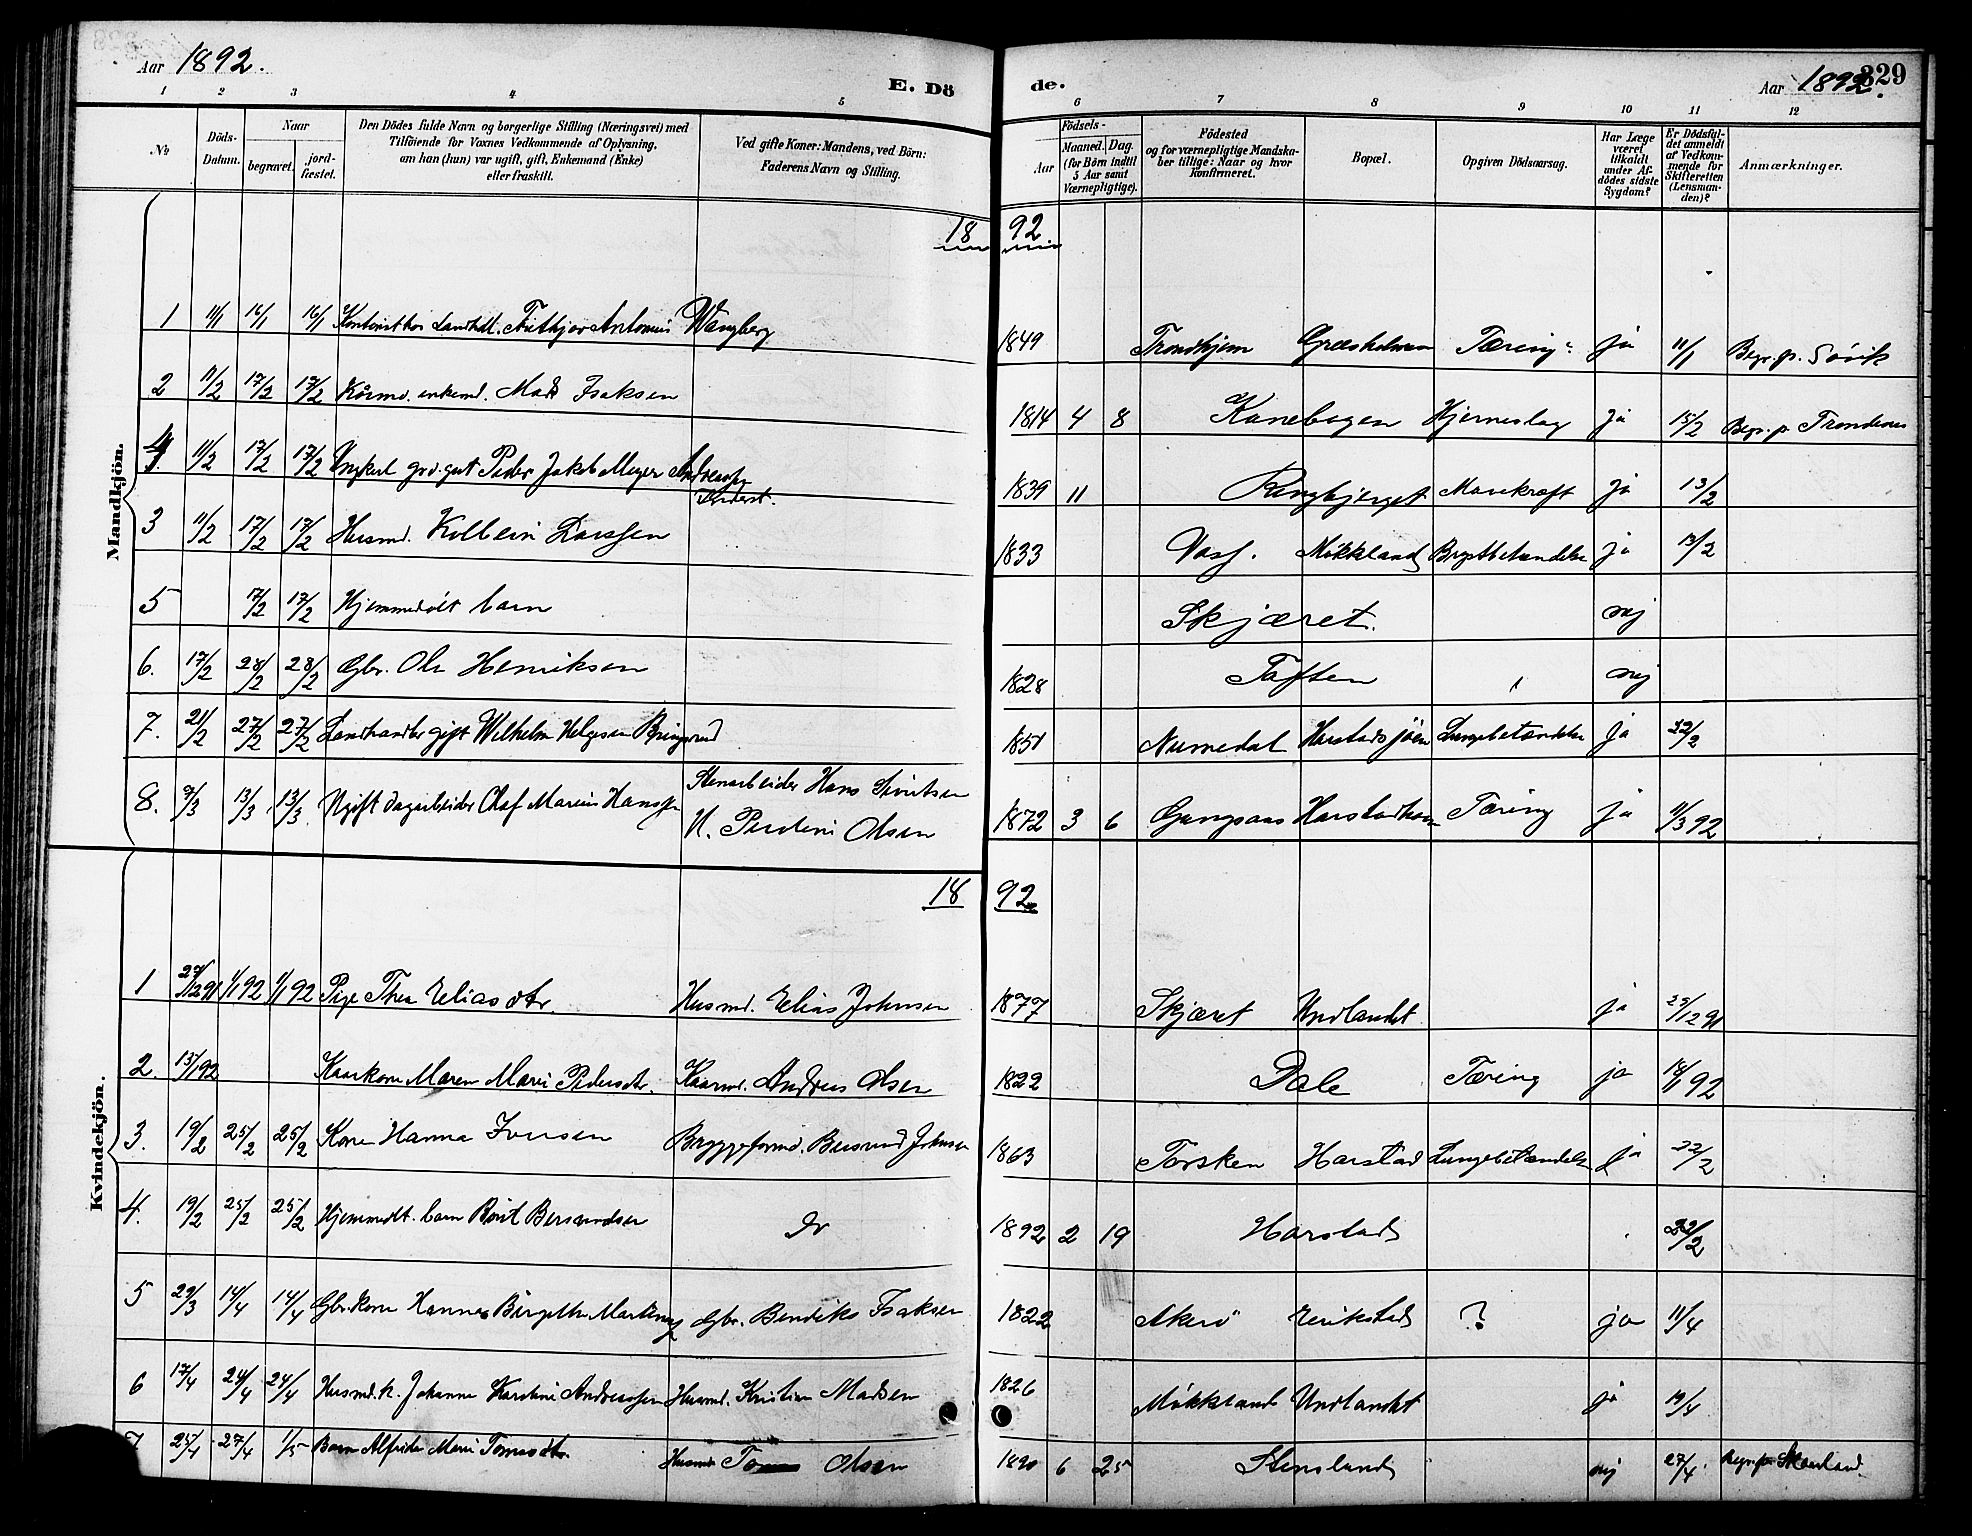 Aar 1892. E. Dö de. Aar 1892. 329
1 2 3 4 5 6 7 8 9 10 11 12
No
Döds-Datum.
Naar
begravet.
jord-fæstet.
Den Dödes fulde Navn og borgerlige Stilling (Næringsvei) med
Tilföiende for Voxnes Vedkommende af Oplysning,
om han (hun) var ugift, gift, Enkemand (Enke)
eller fraskilt.
Ved gifte Koner: Mandens, ved Börn:
Faderens Navn og Stilling.
Födsels-
Aar
Maaned. Dag.
(for Börn indtil
5 Aar samt
Værnepligtige).
Födested
og for værnepligtige Mandska-
ber tillige: Naar og hvor
konfirmeret.
Bopæl.
Opgiven Dödsaarsag.
Har Læge
været
tilkaldt
under Af-
dödes sidste
Sygdom?
Er Dödsfal-
det anmeldt
af Vedkom-
mende for
Skifteretten
(Lensman-
den)?
Anmærkninger.
Mandkjön.
18 92
1 11/1 16/1 16/1 Kontorist hos Landhdl. Frithjov Antonius Wangberg 1849 Trondhjem Græsholmen Tæring ja 11/1 Begr. p. Sörvik
2 11/2 17/2 17/2 Kårmd. enkemd. Mads Isaksen 1814 4 8 Kanebogen Hjerneslag ja 15/2 Begr. p. Trondenes
4 11/2 17/2 17/2 Ungkarl grd.gut Peder Jakob Meyer Andreassen 1839 11 Ringbjerget Marekræft ja 13/2
3 11/2 17/2 17/2 Husmd. Kolbein Larssen 1833 Voss. Møkkland Brystbetændelse ja 13/2
5 17/2 17/2 Hjemmedöbt barn Skjæret. nej
6. 17/2 28/2 28/2 Gbr. Ole Henriksen 1828 Toften nej
7. 21/2 27/2 27/2 Landhandler gift Wilhelm Helgesen Bringsrud 1851 Numedal Harstadsjöen Lungebetændelse ja 22/2
8. 9/3 13/3 13/3 Ugift dagarbeider Olaf Marius Hanssen Stenarbeider Hans Sivertsen
H. Perdeni Olsen 1872 3 6 Gangsaas Harstadhavn Tæring ja 11/3 92
Kvindekjön.
18 92
1 27/12 91 1/1 92 1/1 92 Pige Thea Eliasdtr. Husmd. Elias Johnsen 1877 Skjæret Undlandet ja 29/12 91
2. 13/1 92 Kaarkone Maren Marie Pedersdtr. Kaarmd. Andreas Olsen 1822 Dale Tæring ja 18/1 92
3. 19/2 25/2 25/2 Kone Hanna Iversen Bryggeformd. Bersvend Johnsen 1863 Torsken Harstad Lungebetændelse ja 22/2
4. 19/2 25/2 25/2 Hjemmedt. barn Berit Bersvendsen Do 1892 2 19 Harstad 22/2
5 29/3 14/4 14/4 Gbr.kone Hanna Birgithe Martinussen Gbr. Bendiks Isaksen 1822 Akerö Erikstad ? ja 11/4
6 17/4 24/4 24/4 Husmd.k. Johanna Karoline Andreassen Husmd. Kristian Madsen 1826 Møkkland Undlandet ja 19/4
7 25/4 27/4 1/5 Barn Alfrida Marie Tomasdtr. Husmd. Tomas Olsen 1890 6 25 Stensland nej 27/4 Begr. p. Skaanland